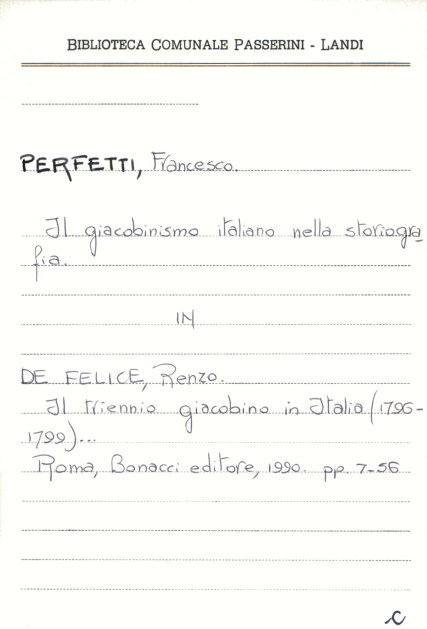 BIBLIOTECA COMUNALE PASSERINI - LANDI
PERFETTI, Francesco.
Il giacobinismo italiano nella storiogra
fia.
IN
DE FELICE, Renzo.
Il triennio giacobino in Italia (1796-
1799)...
Roma, Bonacci editore, 1990. pp. 7-56
C